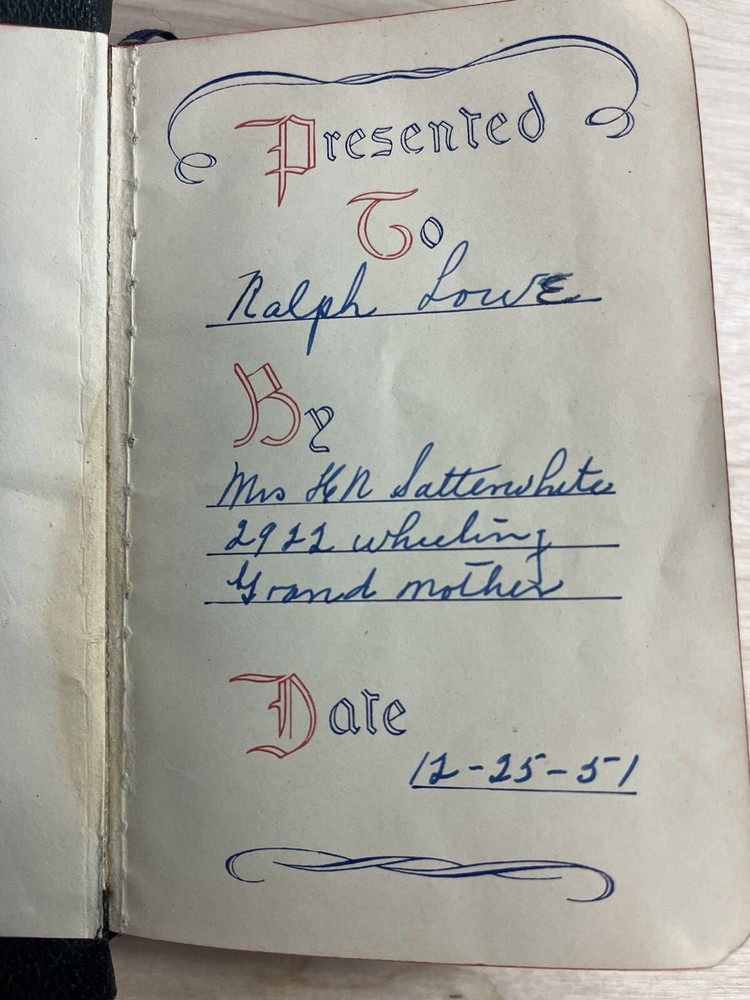 Presented
To
Ralph Lowe
By
Mrs H R Satterwhite
2922 wheeling
Grand mother
Date
12-25-51